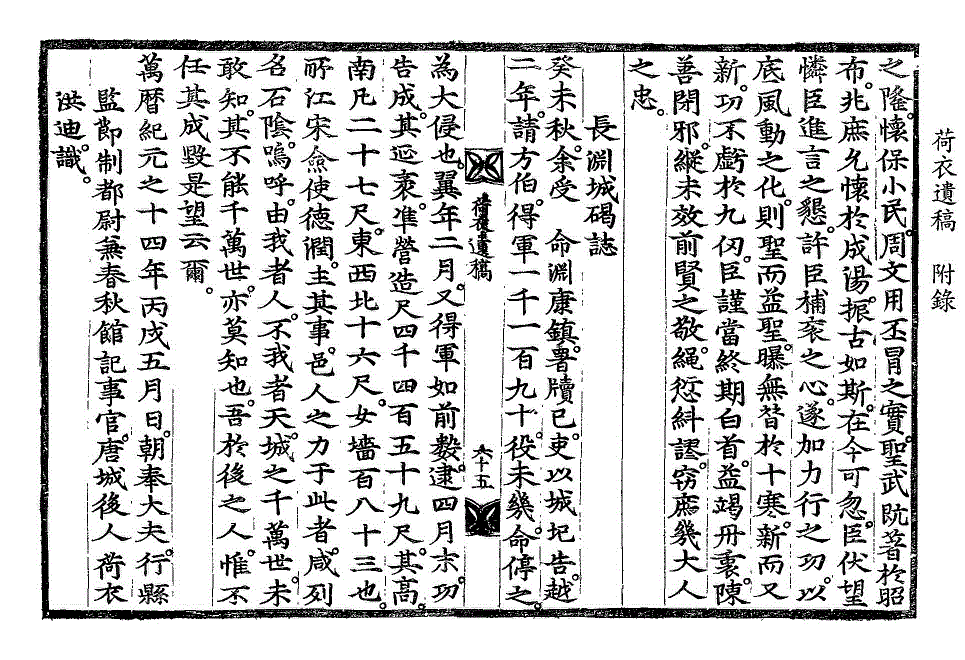 荷衣遺稿 附錄
之隆。懷保小民。周文用丕冒之實。聖武阬著於昭
布。兆庶允懷於成湯。振古如斯。在今可忽。臣伏望
憐臣進言之懇。許臣補袞之心。遂加力行之功。以
底風動之化。則聖而益聖。曝無替於十寒。新而又
新。功不虧於九仞。臣謹當終期白首。益竭丹裏。陳
善閉邪。縱未效前賢之敬。繩愆糾謬。窃庶幾大人
之忠。
長淵城碣誌
癸未秋。余受 命淵康鎮。署牘已。吏以城圮告。越
二年。請方伯。得軍一千一百九十。役未幾。命停之。
荷衣遺稿 六十五
為大侵也。翼年二月。又得軍如前數。逮四月末。功
告成。其延袤。准營造尺四千四百五十九尺。其高
南凡二十七尺。東西北十六尺。女墻百八十三也。
所江宋僉使德潤。主其事。邑人之力于此者。咸列
名石陰。嗚呼。由我者人。不我者天。城之千萬世。未
敢知。其不能千萬世。亦莫知也。吾於後之人。惟不
任其成毀是望云爾。
萬曆紀元之十四年丙戌五月日。朝奉大夫。行縣
監節制都尉兼春秋館記事官。唐城後人荷衣
洪迪識。